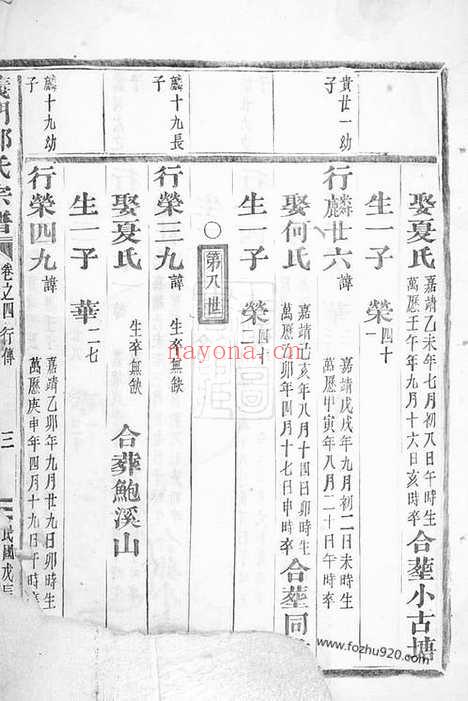 貴世一幼
子
娶夏氏 嘉靖乙未年七月初八日午時生
萬歷壬午年九月十六日亥時卒 合塟小古塘
生一子 榮四十一
行麟廿六 諱 嘉靖戊戌年九月初二日未時生
萬歷甲寅年八月二十日午時卒
娶何氏 嘉靖己亥年八月十四日卯時生
萬歷乙卯年四月十七日申時卒 合塟同
生一子 榮四十二
第八世
麟十九長
子
行榮三九 諱 生卒無缺
娶夏氏 生卒無缺 合葬鮑溪山
生一子 華一二七
麟十九幼
子
行榮四九 諱 嘉靖乙卯年九月廿九日卯時生
萬歷庚申年四月十九日午時卒
義門鄭氏宗譜 卷之四 行傳 三 民國戊辰
nayona.cn
www.fozhu920.com